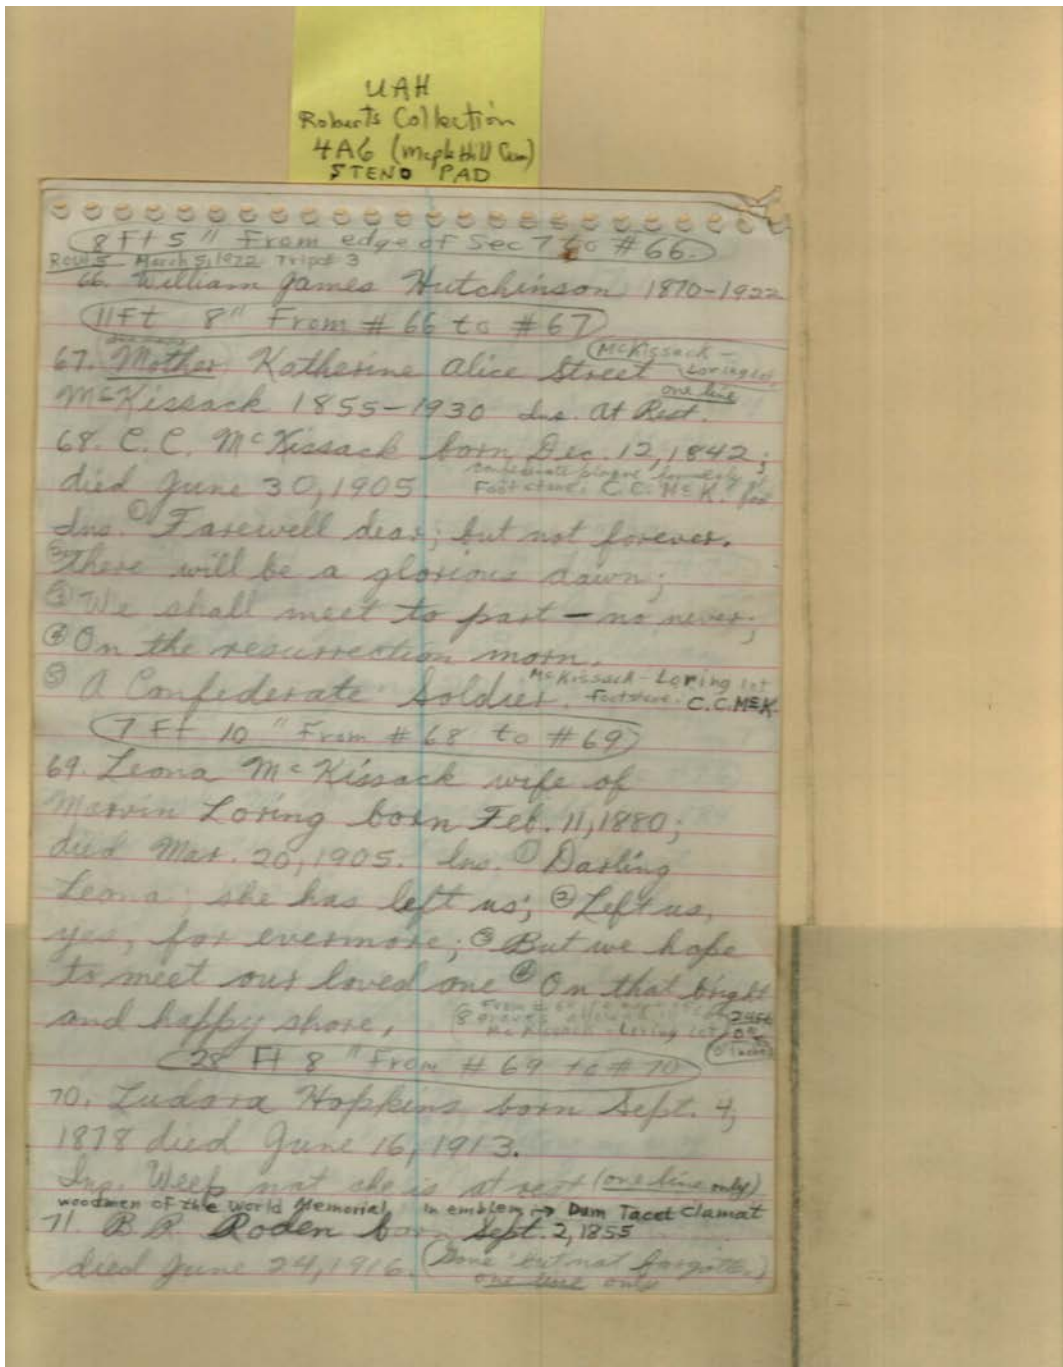 UAH
Roberts Collection
4A6 (Maple Hill Cem)
STENO PAD
8 Ft 5" From edge of Sec 7 to #66.
Row 5 March 5, 1972 Trip # 3
66. William James Hutchinson 1870-1922
11 Ft 8" From #66 to #67
67. Mother Katherine Alice Street McKissack - Loring lot
McKissack 1855-1930 Ins. At Rest. one line
68. C.C. McKissack born Dec. 12, 1842;
died June 30, 1905. Footstone: C.C. McK.
Ins. ① Farewell dear; but not forever.
② There will be a glorious dawn;
③ We shall meet to part - no never;
④ On the resurrection morn.
⑤ A Confederate Soldier. McKissack - Loring lot
Footstone. C.C. McK.
7 Ft 10" From #68 to #69
69. Leona McKissack wife of
Marvin Loring born Feb. 11, 1880;
died Mar. 20, 1905. Ins. ① Darling
Leona; she has left us; ② Left us,
yes, for evermore; ③ But we hope
to meet our loved one ④ On that bright
and happy shore,
McKissack - Loring lot
28 Ft 8" From #69 to #70
70. Ludora Hopkins born Sept. 4,
1878 died June 16, 1913.
Ins. Weep not she is at rest (one line only)
woodmen of the world Memorial, in emblem → Dum Tacet Clamat
71. B R Roden born Sept. 2, 1855
died June 24, 1916. (Gone but not forgotten)
one line only